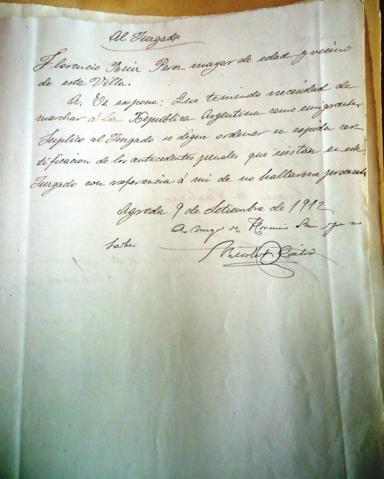 Al Juzgado
Florencio Ruiz Pera mayor de edad y vecino
de esta Villa.
A. Vs expone: Que teniendo necesidad de
marchar á la Republica Argentina como emigrante
Suplico al Juzgado se digne ordenar se expida cer-
tificacion de los antecedentes penales que existan en este
Juzgado con referencia á mi de no hallarme procesado
Agreda 9 de Setiembre de 1912
A ruego de Florencio Ruiz por no
saber